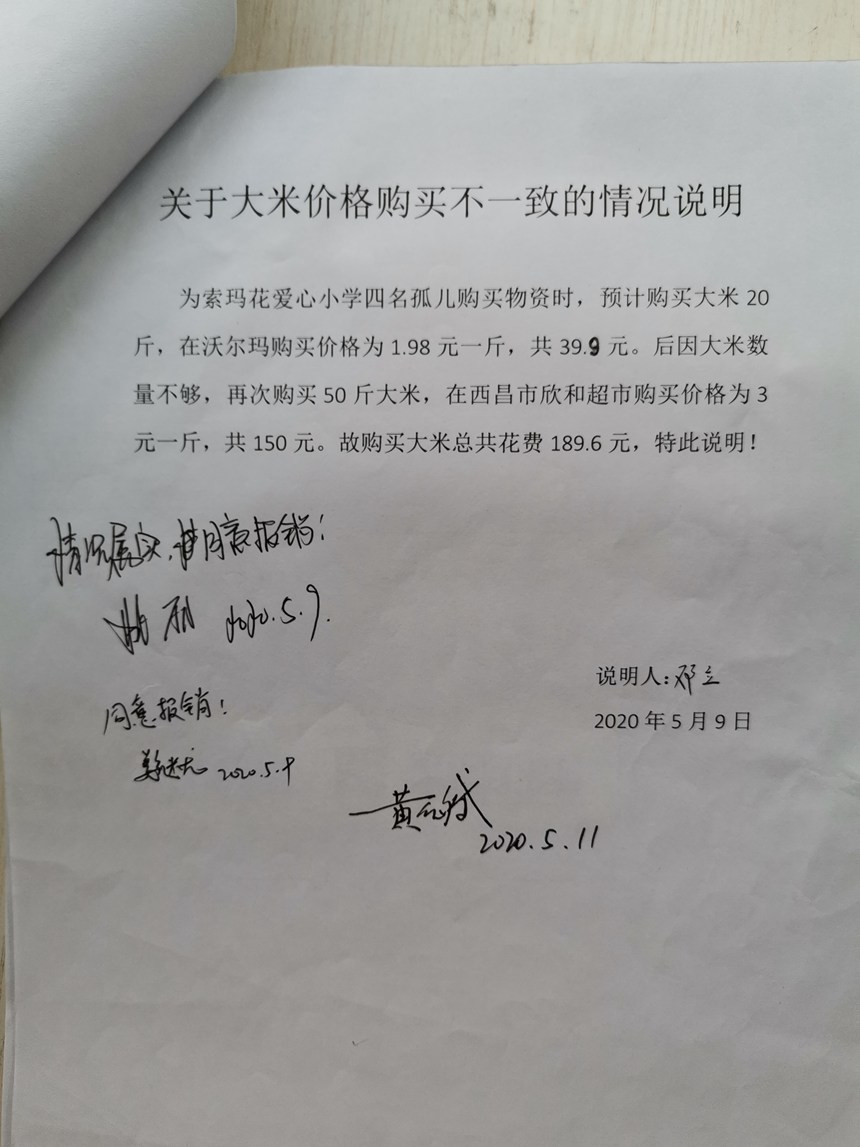 关于大米价格购买不一致的情况说明
为索玛花爱心小学四名孤儿购买物资时，预计购买大米 20
斤，在沃尔玛购买价格为 1.98 元一斤，共 39.9 元。后因大米数
量不够，再次购买 50 斤大米，在西昌市欣和超市购买价格为 3
元一斤，共 150 元。故购买大米总共花费 189.6 元，特此说明！
情况属实，请同意报销！
2020.5.9.
说明人：邓立
同意报销！
2020 年 5 月 9 日
2020.5.9
黄
2020.5.11